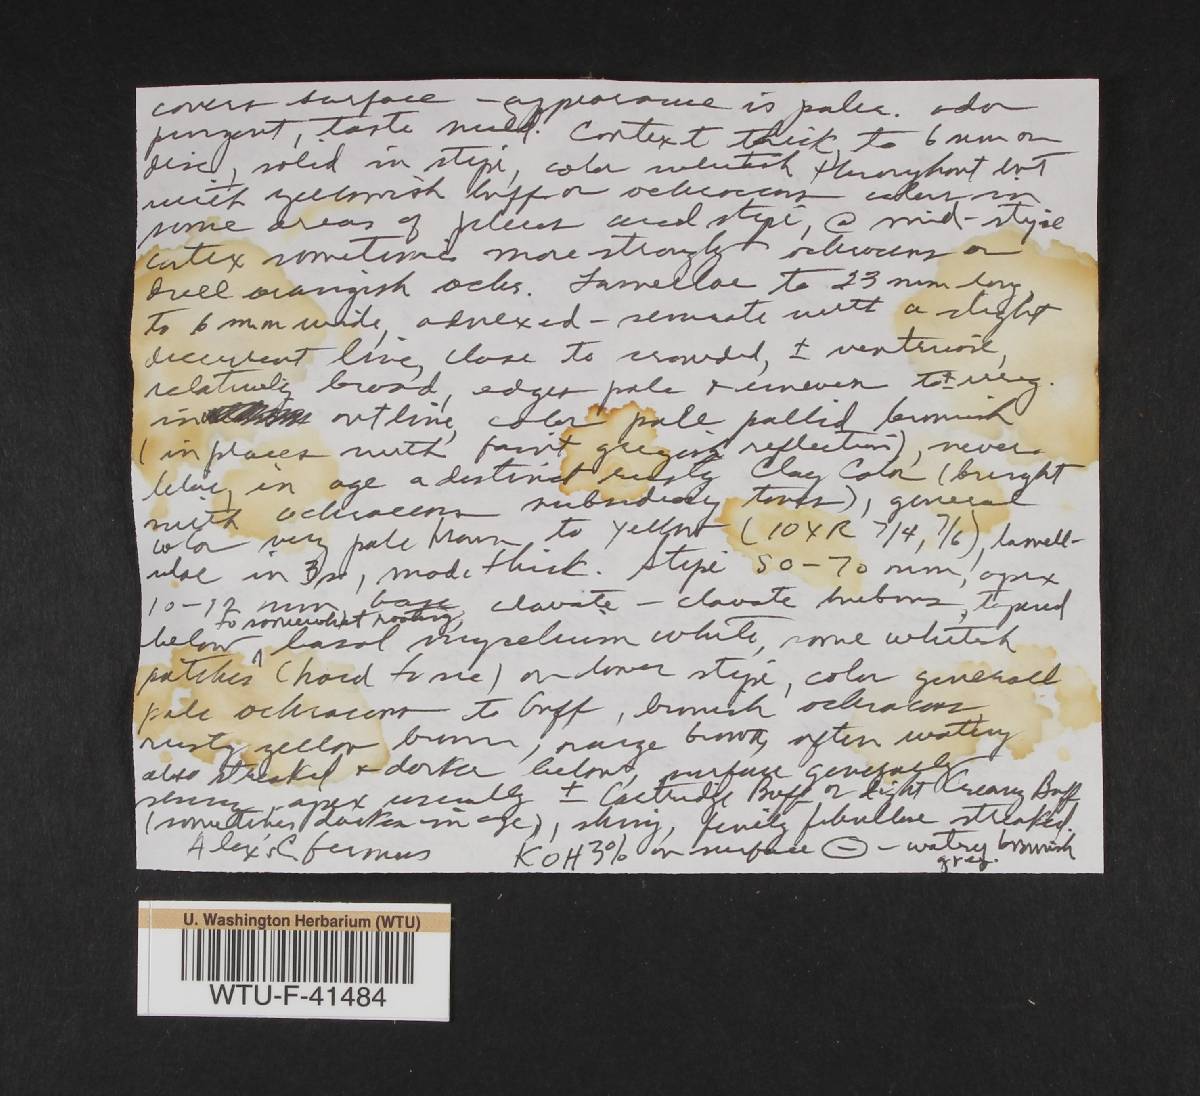 covers surface – appearance is paler. odor
pungent, taste mild. Context thick, to 6 mm on
disc, solid in stipe, color whitish throughout but
with yellowish buff or ochraceous colors in
some areas of pileus and stipe, @ mid-stipe
cortex sometimes more strongly ochraceous or
dull orangish ochr. Lamellae to 23 mm long,
to 6 mm wide, adnexed – seruate with a slight
decurrent line, close to crowded, ± ventricose,
relatively broad, edges pale & uneven to ± wavy.
in outline, color pale pallid brownish
(in places with faint greyish reflection), never
lilac, in age a distinct rusty Clay Color (bright
with ochraceous subsidiary tones), general
color very pale brown to yellow (10YR 7/4, 7/6), lamell-
ulae in 3's, mod. thick. Stipe 50–70 mm, apex
10–12 mm, base clavate – clavate bulbous, tapered
to somewhat rooting,
below, basal mycelium white, some whitish
patches (hard to see) on lower stipe, color generall
pale ochraceous to buff, brownish ochraceous
rusty yellow brown, orange brown, often watery
also streaked & darker below, surface generally
shiny, apex usually ± Cartridge Buff or Light Creamy Buff
(sometimes darker in age), shiny, finely fibrillose streaked
KOH 3% on surface ⊖ – watery brownish
grey.
U. Washington Herbarium (WTU)
WTU-F-41484